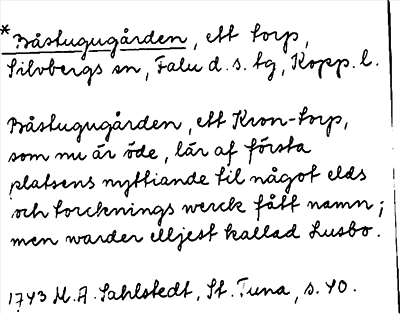 *Båstugugården, ett torp,
Silvbergs sn, Falu d.s. tg, Kopp. l.
Båstugugården, ett Kron-torp,
som nu är öde, lär af första
platsens nyttiande til något elds
och torcknings werck fått namn;
men warder elljest kallad Lusbo.
1743 M.A. Sahlstedt, St. Tuna, s. 40.